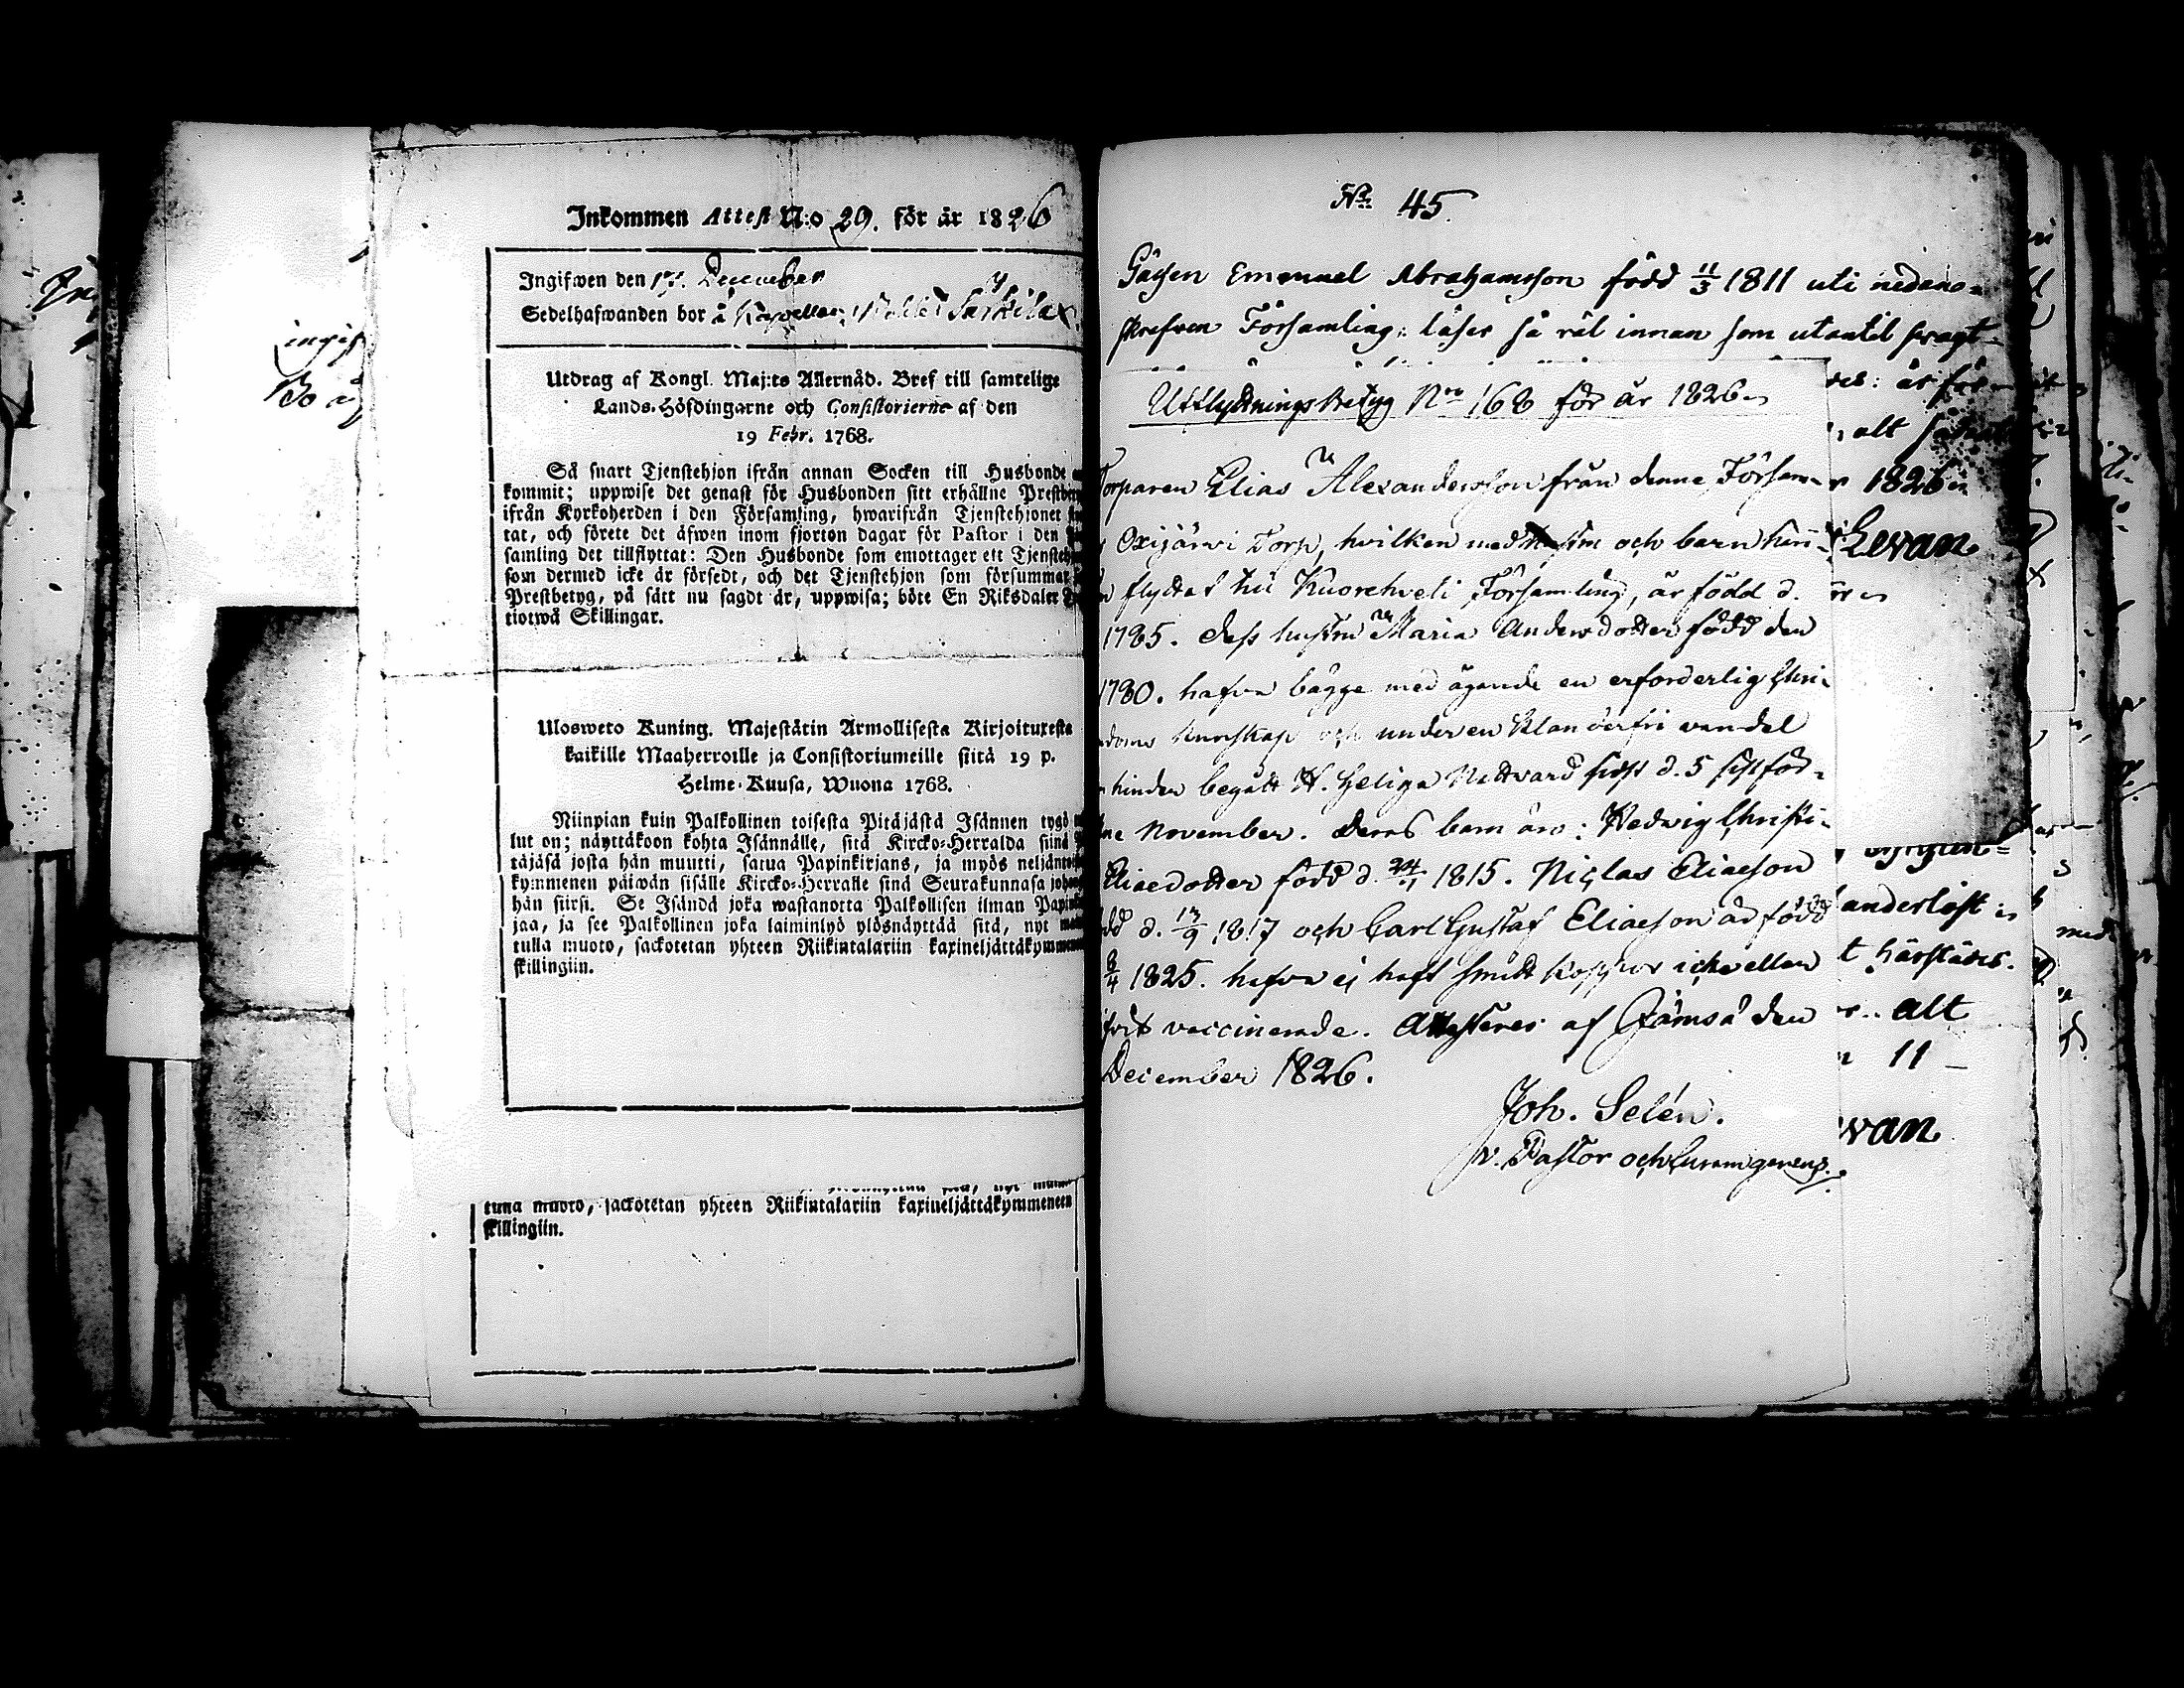 Inkommen Attest N:o 29. för år 1826
Ingifwen den 17. December
Sedelhafwanden bor å Kapellan Särkilax
Utdrag af Kongl. Maj:ts Allernåd. Bref till samtelige
Lands-Höfdingarne och Consistorierne af den
19 Febr. 1768.
Så snart Tjenstehjon ifrån annan Socken till Husbonde
kommit; uppwise det genast för Husbonden sitt erhållne
ifrån Kyrkoherden i den Församling, hwarifrån Tjenstehjonet
tat, och förete det äfwen inom fjorton dagar för Pastor i den
samling det tillflyttat: Den Husbonde som emottager ett
som dermed icke är försedt, och det Tjenstehjon som försummar
Prestbetyg, på sätt nu sagdt är, uppwisa; böte En Riksdaler
tiotwå Skillingar.
Ulosweto Kuning. Majestätin Armollisesta Kirjoituxesta
kaikille Maaherroille ja Consistoriumeille siitä 19 p.
Helme-Kuusa, Wuona 1768.
Niinpian kuin Palkollinen toisesta Pitäjästä Isännen tygö
lut on; näyttäkoon kohta Isännälle, sitä Kircko-Herralda siinä
täjäsä josta hän muutti, saatua Papinkirjans, ja myös
kymmenen päiwän sisälle Kircko-Herralle sinä Seurakunnasa
hän siirsi. Se Isändä joka wastanotta Palkollisen ilman
jaa, ja see Palkollinen joka laiminlyö ylösnäyttää sitä, nyt
tulla muoto, sackotetan yhteen Riikintalariin kaxineljättäkymmene
skillingiin.
tuna muoto, sackotetan yhteen Riikintalariin kaxineljättäkymmeneen
skillingiin.
ingif
Bo å
No 45.
Gåssen Emanuel Abrahamsson född 11/3 1811 uti nedan-
skrefven Församling: läser så väl innan som utantil
Utflyttnings Betyg Nro 168 för år 1826
Torparen Elias Alexandersson från denne Försam-
Oxijärvi Torp, hvilken med hustru och barn
flyttat till Kuorehveli Församling, är född d.
1785. Dess hustru Maria Andersdotter född den
1780. hafva bägge med ägande en erforderlig Chri-
doms kunskap och under en klanderfri vandel
hinder begått H. Heliga Nattvard sidst d. 5 sistför-
ne November. Deras barn äro: Hedwig Christi-
Eliaedotter född d. 24/1 1815. Niclas Eliaeson
dd d. 17/9 1817 och Carl Gustaf Eliaeson är född
8/4 1825. hafva ej haft smitt koppor icke eller
vaccinerade. Attesteres af Jämsä den
December 1826.
Joh. Selén.
v. Pastor och Curam gerens.
alt
1826
Levan
anderläst
t härstädes.
alt
11
van